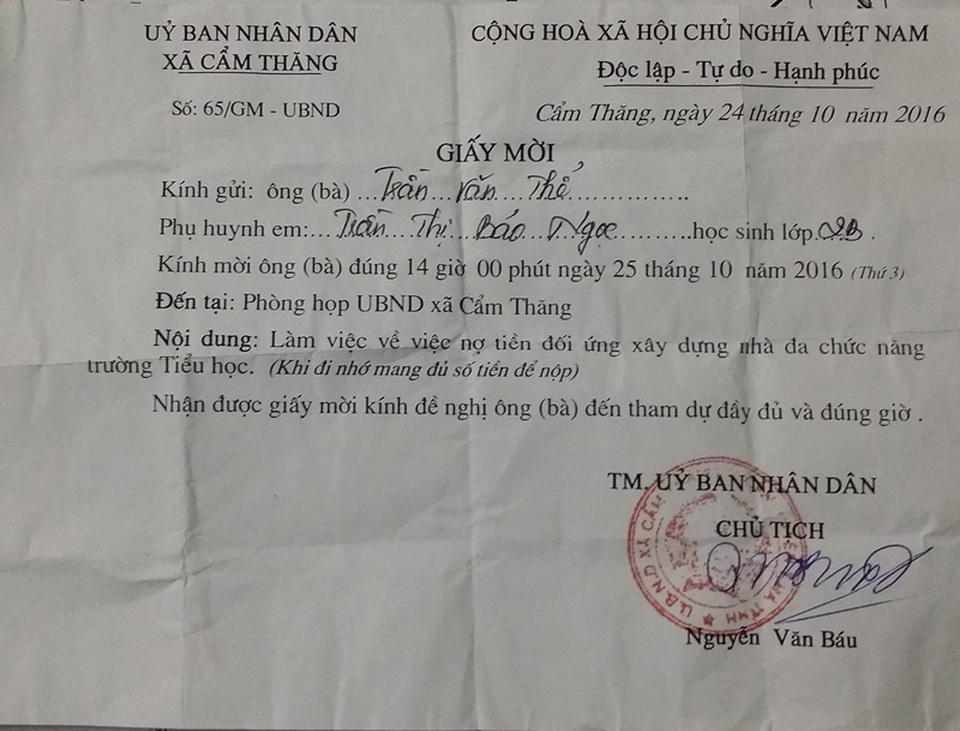 UỶ BAN NHÂN DÂN
XÃ CẨM THĂNG
Số: 65/GM - UBND
CỘNG HOÀ XÃ HỘI CHỦ NGHĨA VIỆT NAM
Độc lập - Tự do - Hạnh phúc
Cẩm Thăng, ngày 24 tháng 10 năm 2016
GIẤY MỜI
Kính gửi: ông (bà) ...Trần Văn Thể...............
Phụ huynh em:...Trần...Thị...Bảo...Ngọc...........học sinh lớp.02B .
Kính mời ông (bà) đúng 14 giờ 00 phút ngày 25 tháng 10 năm 2016 (Thứ 3)
Đến tại: Phòng họp UBND xã Cẩm Thăng
Nội dung: Làm việc về việc nợ tiền đối ứng xây dựng nhà đa chức năng
trường Tiểu học. (Khi đi nhớ mang đủ số tiền để nộp)
Nhận được giấy mời kính đề nghị ông (bà) đến tham dự đầy đủ và đúng giờ .
TM. UỶ BAN NHÂN DÂN
CHỦ TỊCH
U.B.N.D XÃ CẨM
HÀ TĨNH
Nguyễn Văn Báu